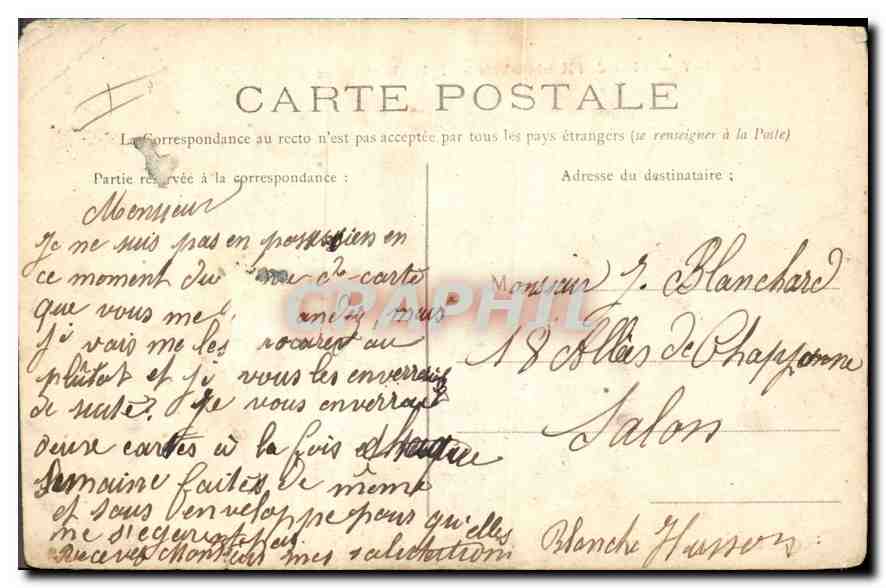 CARTE POSTALE
La Correspondance au recto n'est pas acceptée par tous les pays étrangers (se renseigner à la Poste)
Partie réservée à la correspondance :
Adresse du destinataire ;
Monsieur
Je ne suis pas en en
ce moment du de carte
que vous me andez, mais
ji vais me les au
plûtot et ji vous les enverrais
de suite. Je vous enverrait
deux cartes à la fois chaque
semaine faites de même
et sous enveloppe pour qu'elles
me s'egarent pas.
recevez mes salutations
Monsieur J. Blanchard
18 Allées de Chapponne
Salon
Blanche Husson
CPAPHIL